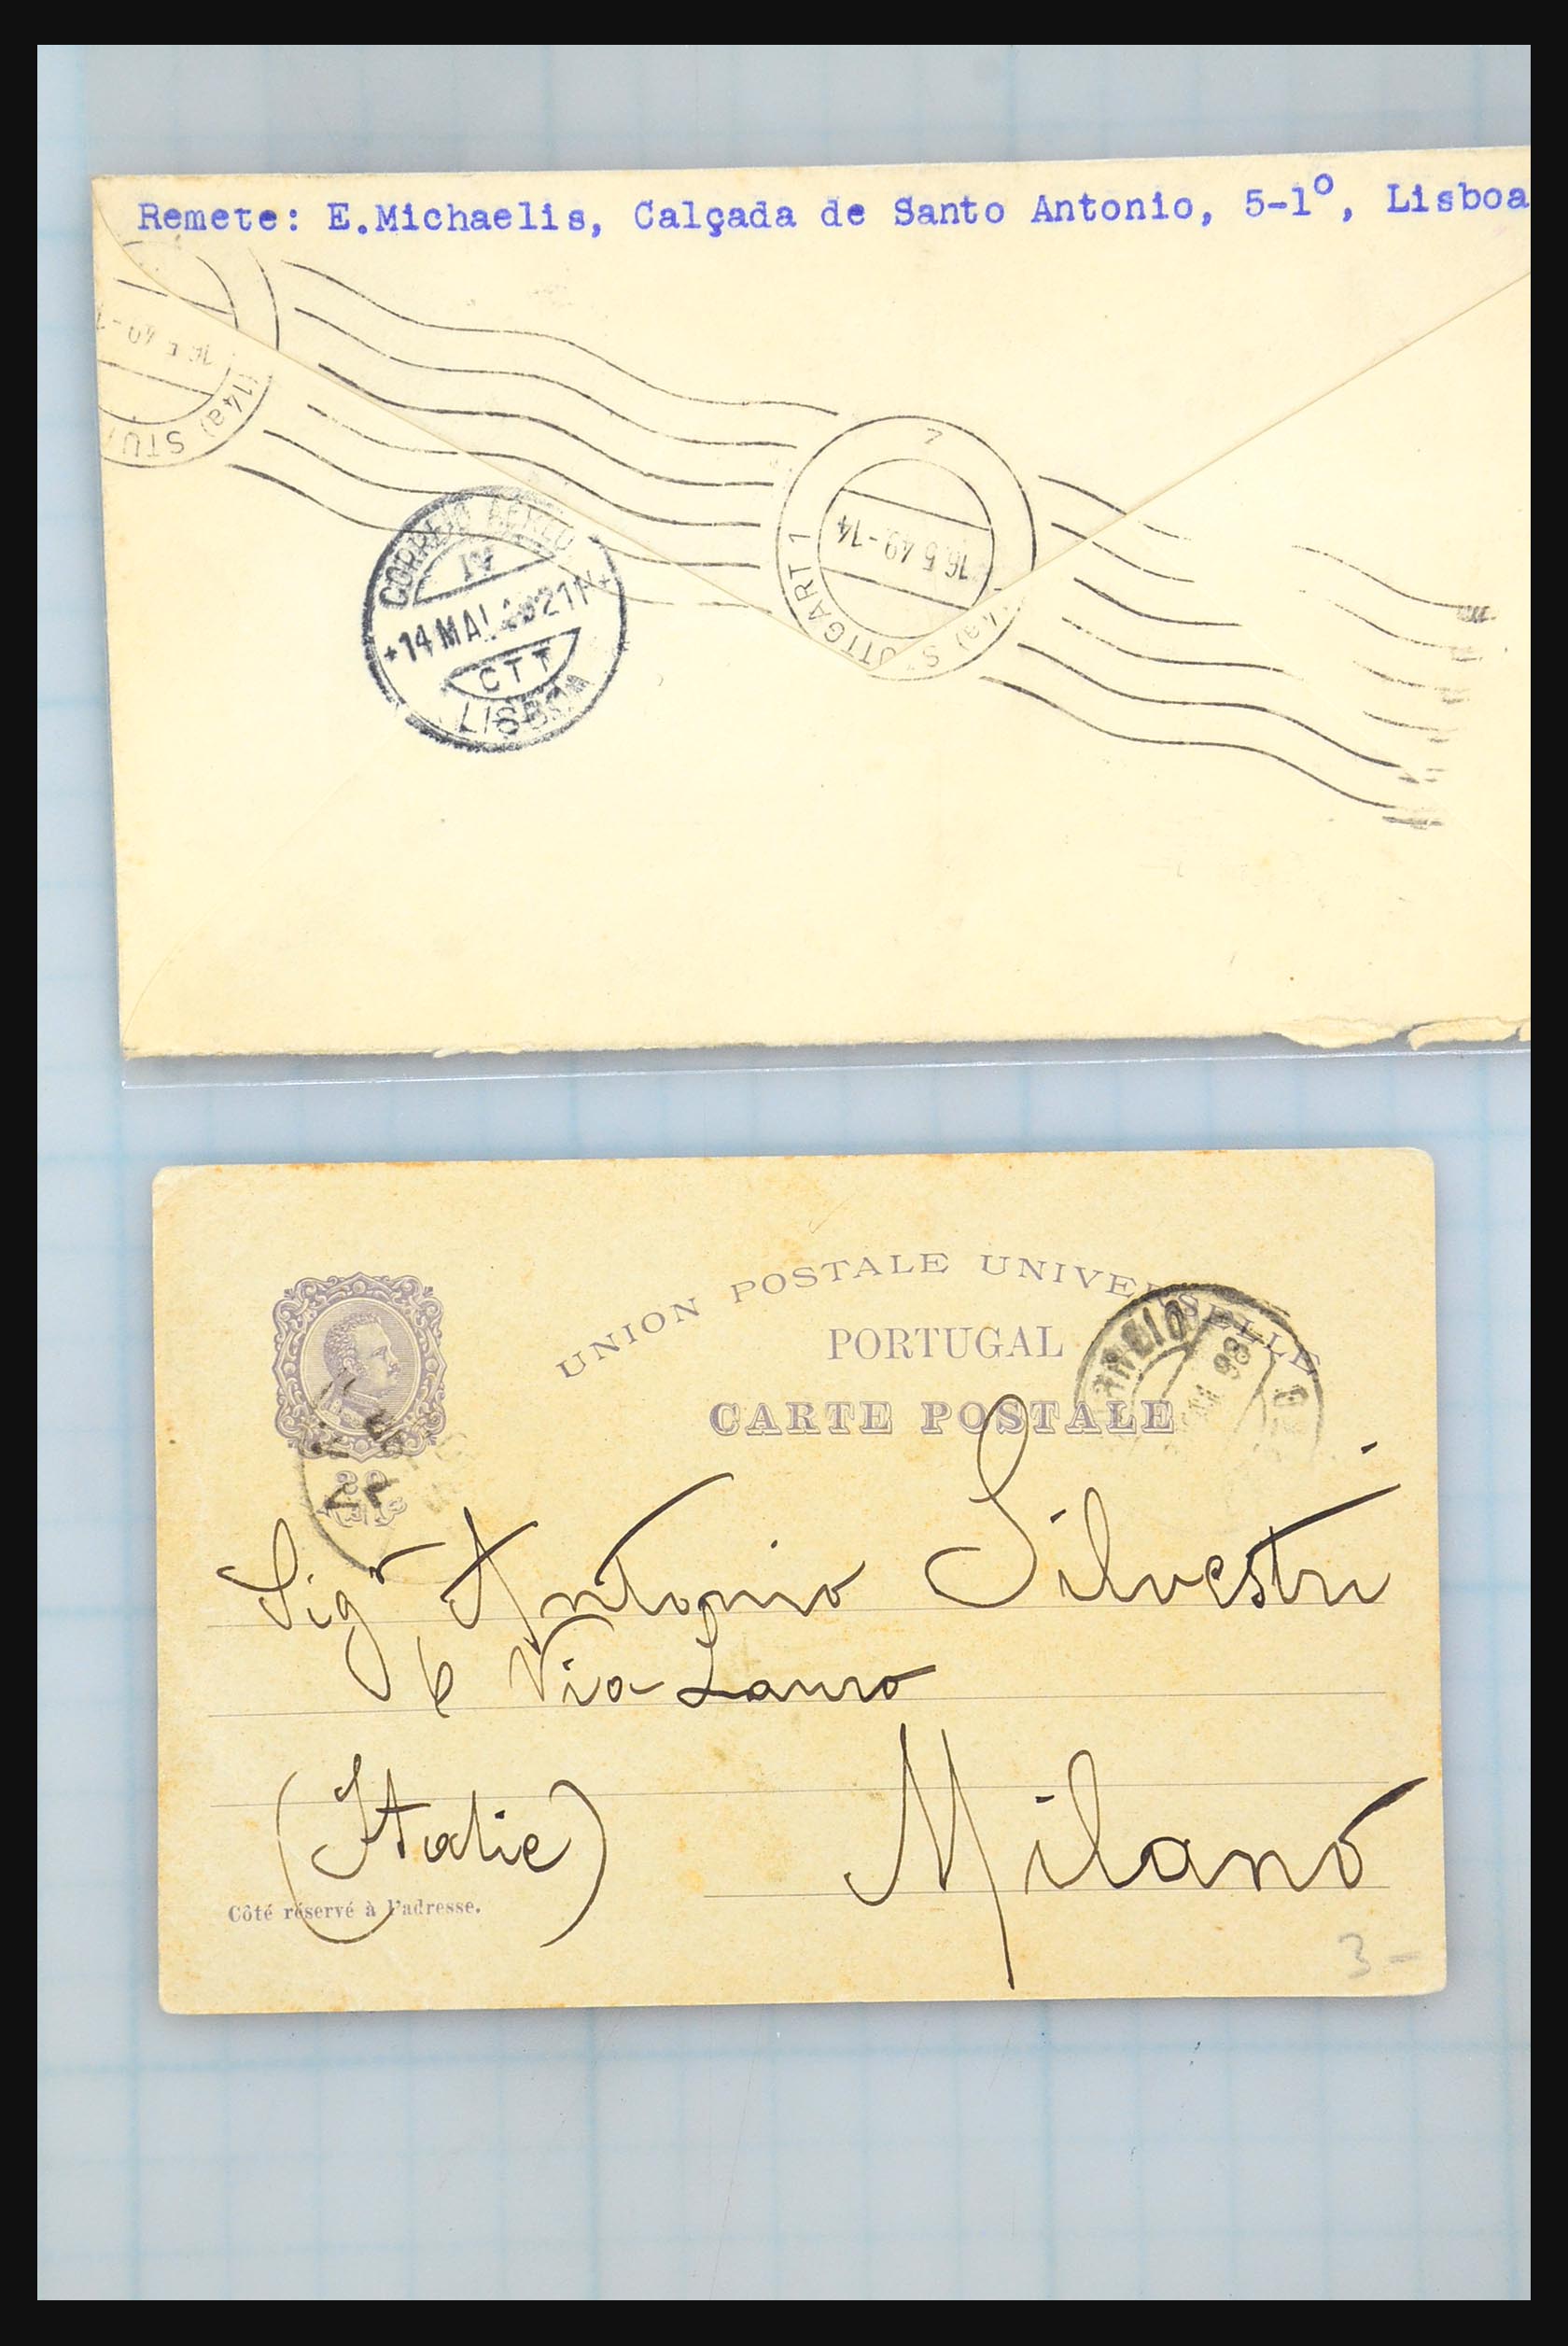 Remete: E.Michaelis, Calçada de Santo Antonio, 5-1º, Lisboa
16.5.49-1
(14a) STUT
CORREIO AEREO
14 MAI 21H
CTT
LISBOA
2
16.5.49.-14
(14a) STUTTGART 1
UNION POSTALE UNIVERSELLE
PORTUGAL
CARTE POSTALE
98
20
Sigr Antonio Silvestri
6 Via Lauro
(Italie) Milano
Côté réservé à l'adresse.
3-